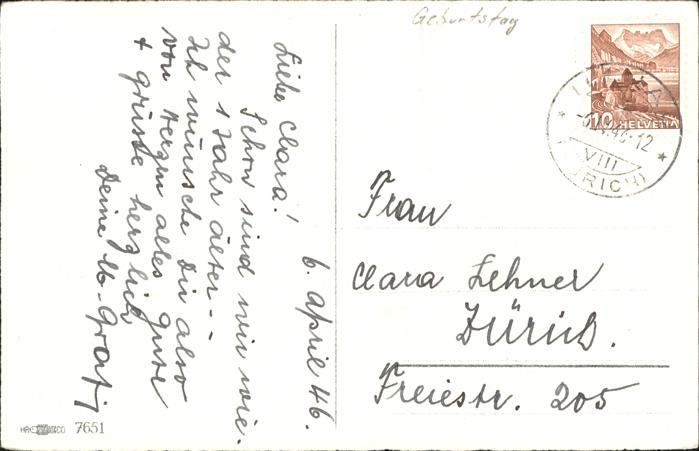 Geburtstag
6. April 46.
Liebe Clara!
Schon sind wir wie-
der 1 Jahr älter--
Ich wünsche Dir also
von Herzen alles Gute
+ grüsse herzlich
Deine
HELVETIA
10
-6.IV.46-12
VIII
(ZÜRICH)
Frau
Clara Lehner
Zürich.
Freiestr. 205
7651